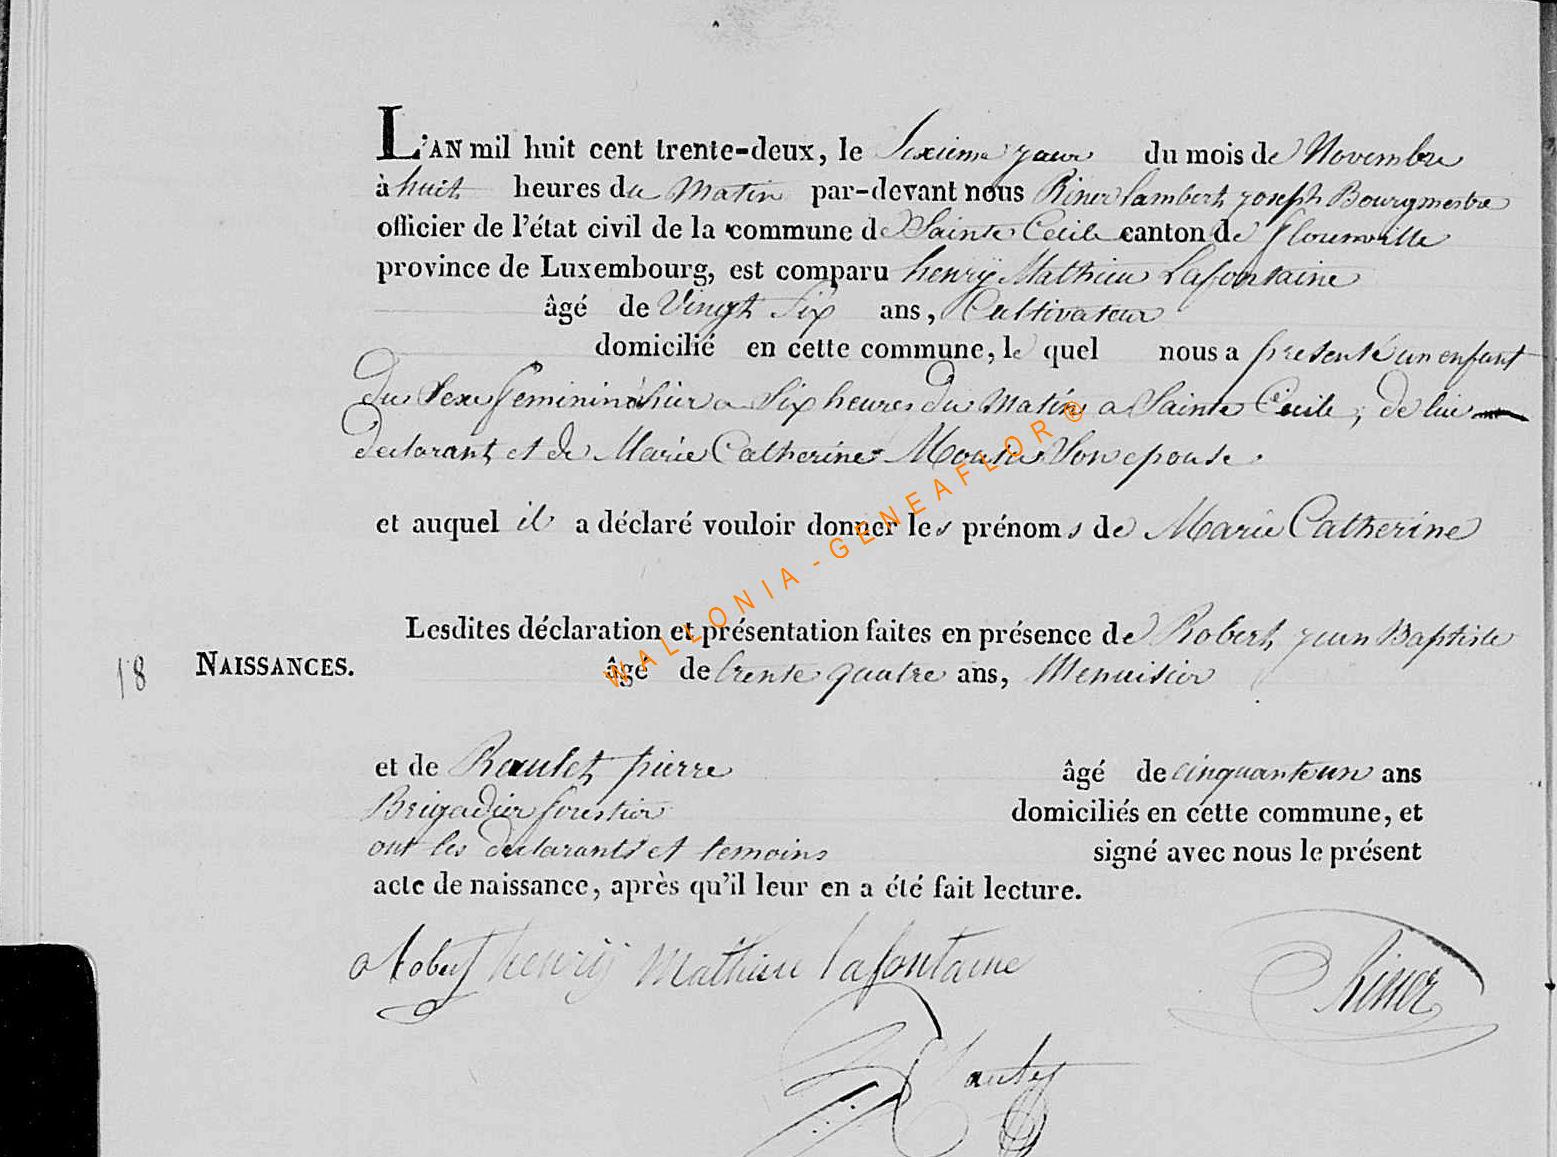 L'AN mil huit cent trente-deux, le sixieme jour du mois de Novembre
à huit heures du Matin par-devant nous Riner lambert joseph Bourgmestre
officier de l'état civil de la commune de Sainte Cecile canton de florenville
province de Luxembourg, est comparu henrÿ Mathieu Lafontaine
âgé de Vingt Six ans, Cultivateur
domicilié en cette commune, le quel nous a presenté un enfant
du Sexe feminin né hier a Six heures du Matin a Sainte Cecile, de lui
declarant et de Marie Catherine Son epouse.
et auquel il a déclaré vouloir donner les prénoms de Marie Catherine
Lesdites déclaration et présentation faites en présence de Robert jean Baptiste
18 NAISSANCES. âgé de trente quatre ans, Menuisier
et de Raulet pierre âgé de cinquante un ans
Brigadier forestier domiciliés en cette commune, et
ont les declarants et temoins signé avec nous le présent
acte de naissance, après qu'il leur en a été fait lecture.
Robert henrÿ Mathieu lafontaine Riner
WALLONIA - GENEAFLOR ©